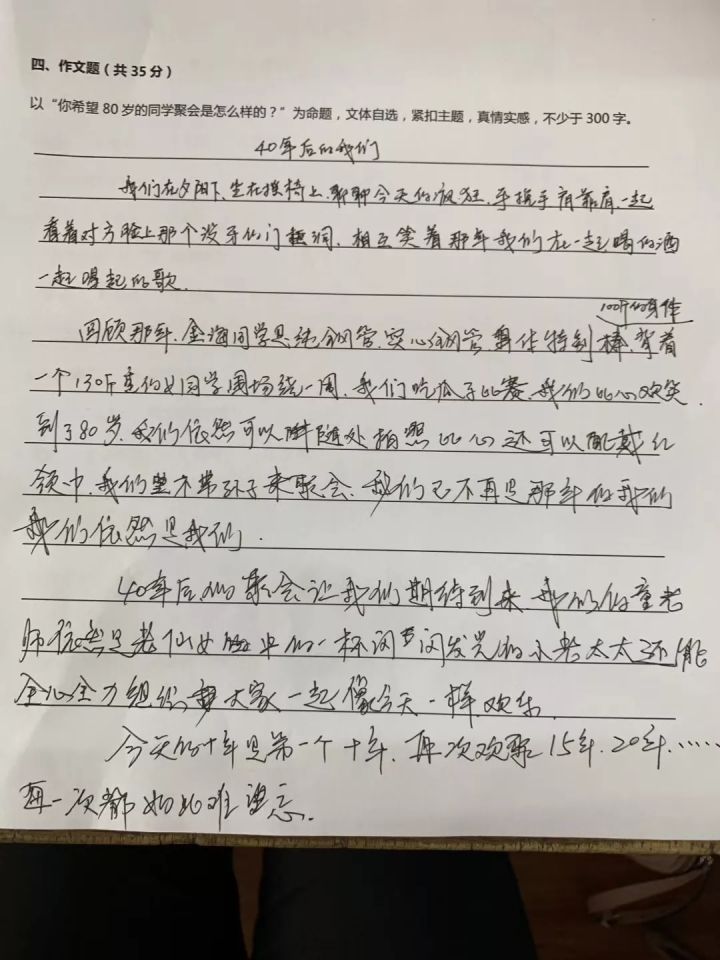 四、作文题（共 35 分）
以“你希望 80 岁的同学聚会是怎么样的？”为命题，文体自选，紧扣主题，真情实感，不少于 300 字。
40年后的我们
我们在夕阳下、坐在摇椅上、聊聊今天的疯狂、手挽手肩靠肩、一起
看着对方脸上那个没牙的门 洞、相互笑着那年我们在一起喝的酒
一起唱起的歌、
100斤的身体
回顾那年、金海同学 钢管、实心钢管 身体特别棒、背着
一个130斤重的女同学围场绕一周、我们吃瓜子比赛、我们比心欢笑、
到了80岁、我们依然可以 随处拍照比心还可以配戴红
领巾、我们 带孙子来聚会、我们已不再是那年的我们
我们依然是我们．
40年后的聚会让我们期待到来、我们的童老
师依然是老仙女 的一杯闪闪发光的小老太太还能
全心全力组织 大家一起像今天一样欢乐
今天的十年是第一个十年、再次欢聚15年、20年……
每一次都如此难忘．